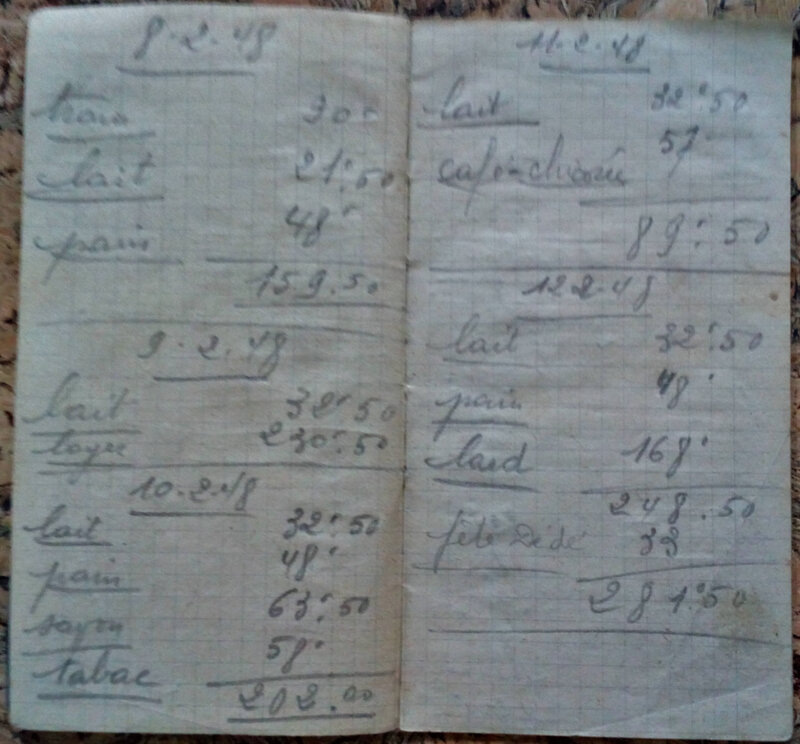 8.2.48
train 90.
lait 21.50
pain 48.
159.50
9.2.48
lait 32.50
loyer 230.50
10.2.48
lait 32.50
pain 48.
savon 63.50
tabac 58.
202.00
11.2.48
lait 32.50
café-chicorée 57.
89.50
12.2.48
lait 32.50
pain 48.
lard 168.
248.50
33
281.50